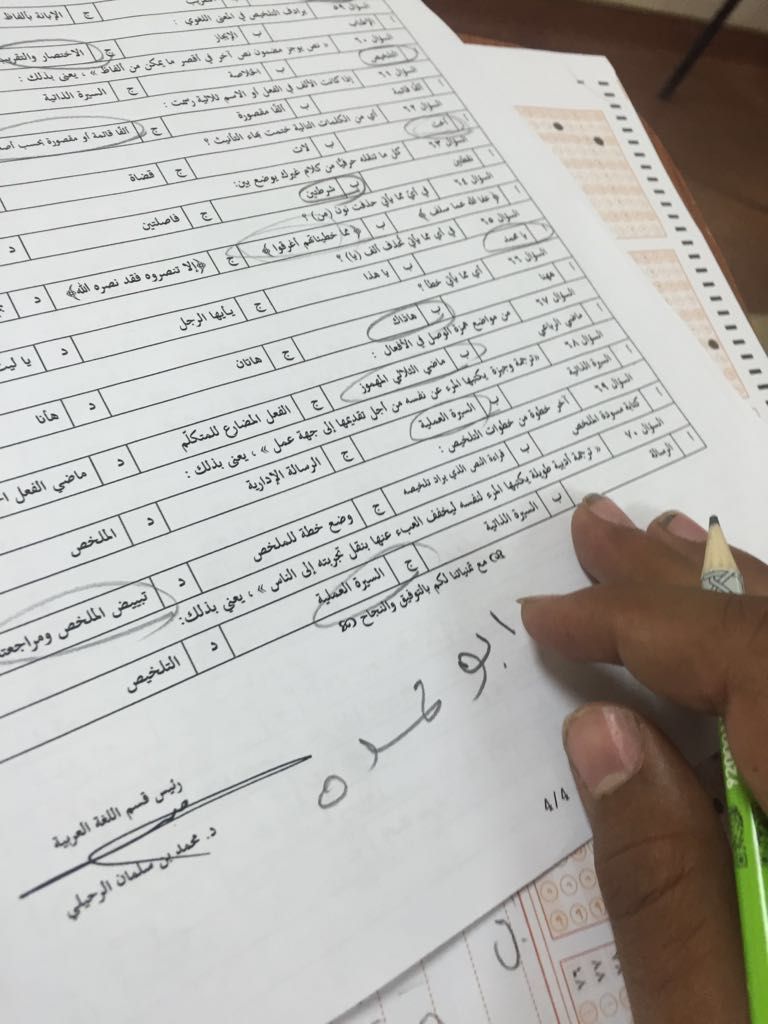 السؤال ٥٩ يرادف التلخيص في المعنى اللغوي :
أ الإطناب ب الإيجاز ج الإبانة بألفاظ
السؤال ٦٠ « نص يوجز مضمون نص آخر في أقصر ما يمكن من ألفاظ » ، يعنى بذلك :
أ التلخيص ب الخلاصة ج السيرة الذاتية
السؤال ٦١ إذا كانت الألف في الفعل أو الاسم ثلاثية رسمت :
أ ألفًا قائمة ب ألفًا مقصورة ج ألفًا قائمة أو مقصورة بحسب
السؤال ٦٢ أي من الكلمات التالية ختمت بهاء التأنيث ؟
أ ب لات ج قضاة
السؤال ٦٣ كل ما تنقله حرفيًّا من كلام غيرك يوضع بين:
أ نقطتين ب شرطتين ج فاصلتين د
السؤال ٦٤ في أيّ مما يأتي حذفت نون (من) ؟
أ ﴿عفا الله عما سلف﴾ ب ﴿مما خطيئاتهم أغرقوا﴾ ج ﴿إلا تنصروه فقد نصره الله﴾ د
السؤال ٦٥ في أي مما يأتي تُحذف ألف (يا) ؟
أ يا محمد ب يا هذا ج يأيها الرجل د يا ليت
السؤال ٦٦ أي مما يأتي خطأ ؟
أ ههنا ب هاذاك ج هاتان د هأنا
السؤال ٦٧ من مواضع همزة الوصل في الأفعال :
أ ماضي الرباعي ب ماضي الثلاثي المهموز ج الفعل المضارع للمتكلّم د ماضي الفعل
السؤال ٦٨ «ترجمة وجيزة يكتبها المرء عن نفسه من أجل تقديمها إلى جهة عمل» ، يعنى بذلك :
أ السيرة الذاتية ب السيرة العملية ج الرسالة الإدارية د الملخص
السؤال ٦٩ آخر خطوة من خطوات التلخيص :
أ كتابة مسودة الملخص ب قراءة النص الذي يراد تلخيصه ج وضع خطة للملخص د تبييض الملخص ومراجعته
السؤال ٧٠ « ترجمة أدبية طويلة يكتبها المرء لنفسه ليخفف العبء عنها بنقل تجربته إلى الناس » ، يعني بذلك:
أ الرسالة ب السيرة الذاتية ج السيرة العملية د التلخيص
مع تمنياتنا لكم بالتوفيق والنجاح
ابو حمده
رئيس قسم اللغة العربية
د. محمد بن سلمان الرحيلي
4/4